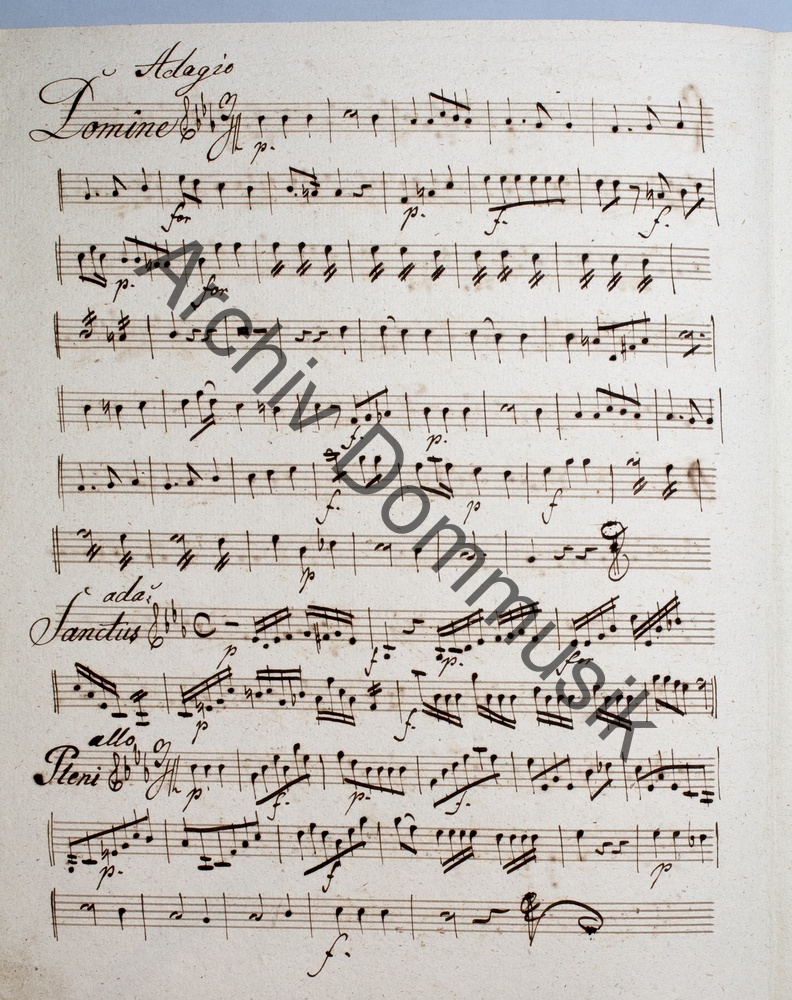 Adagio
Domine
p.
for p. f. f.
p. for
f. p.
f. p f
p
ada:
Sanctus
p f p. for
p f.
allo
Pleni
p f. p. f.
p. f p
f.
Archiv Dommusik